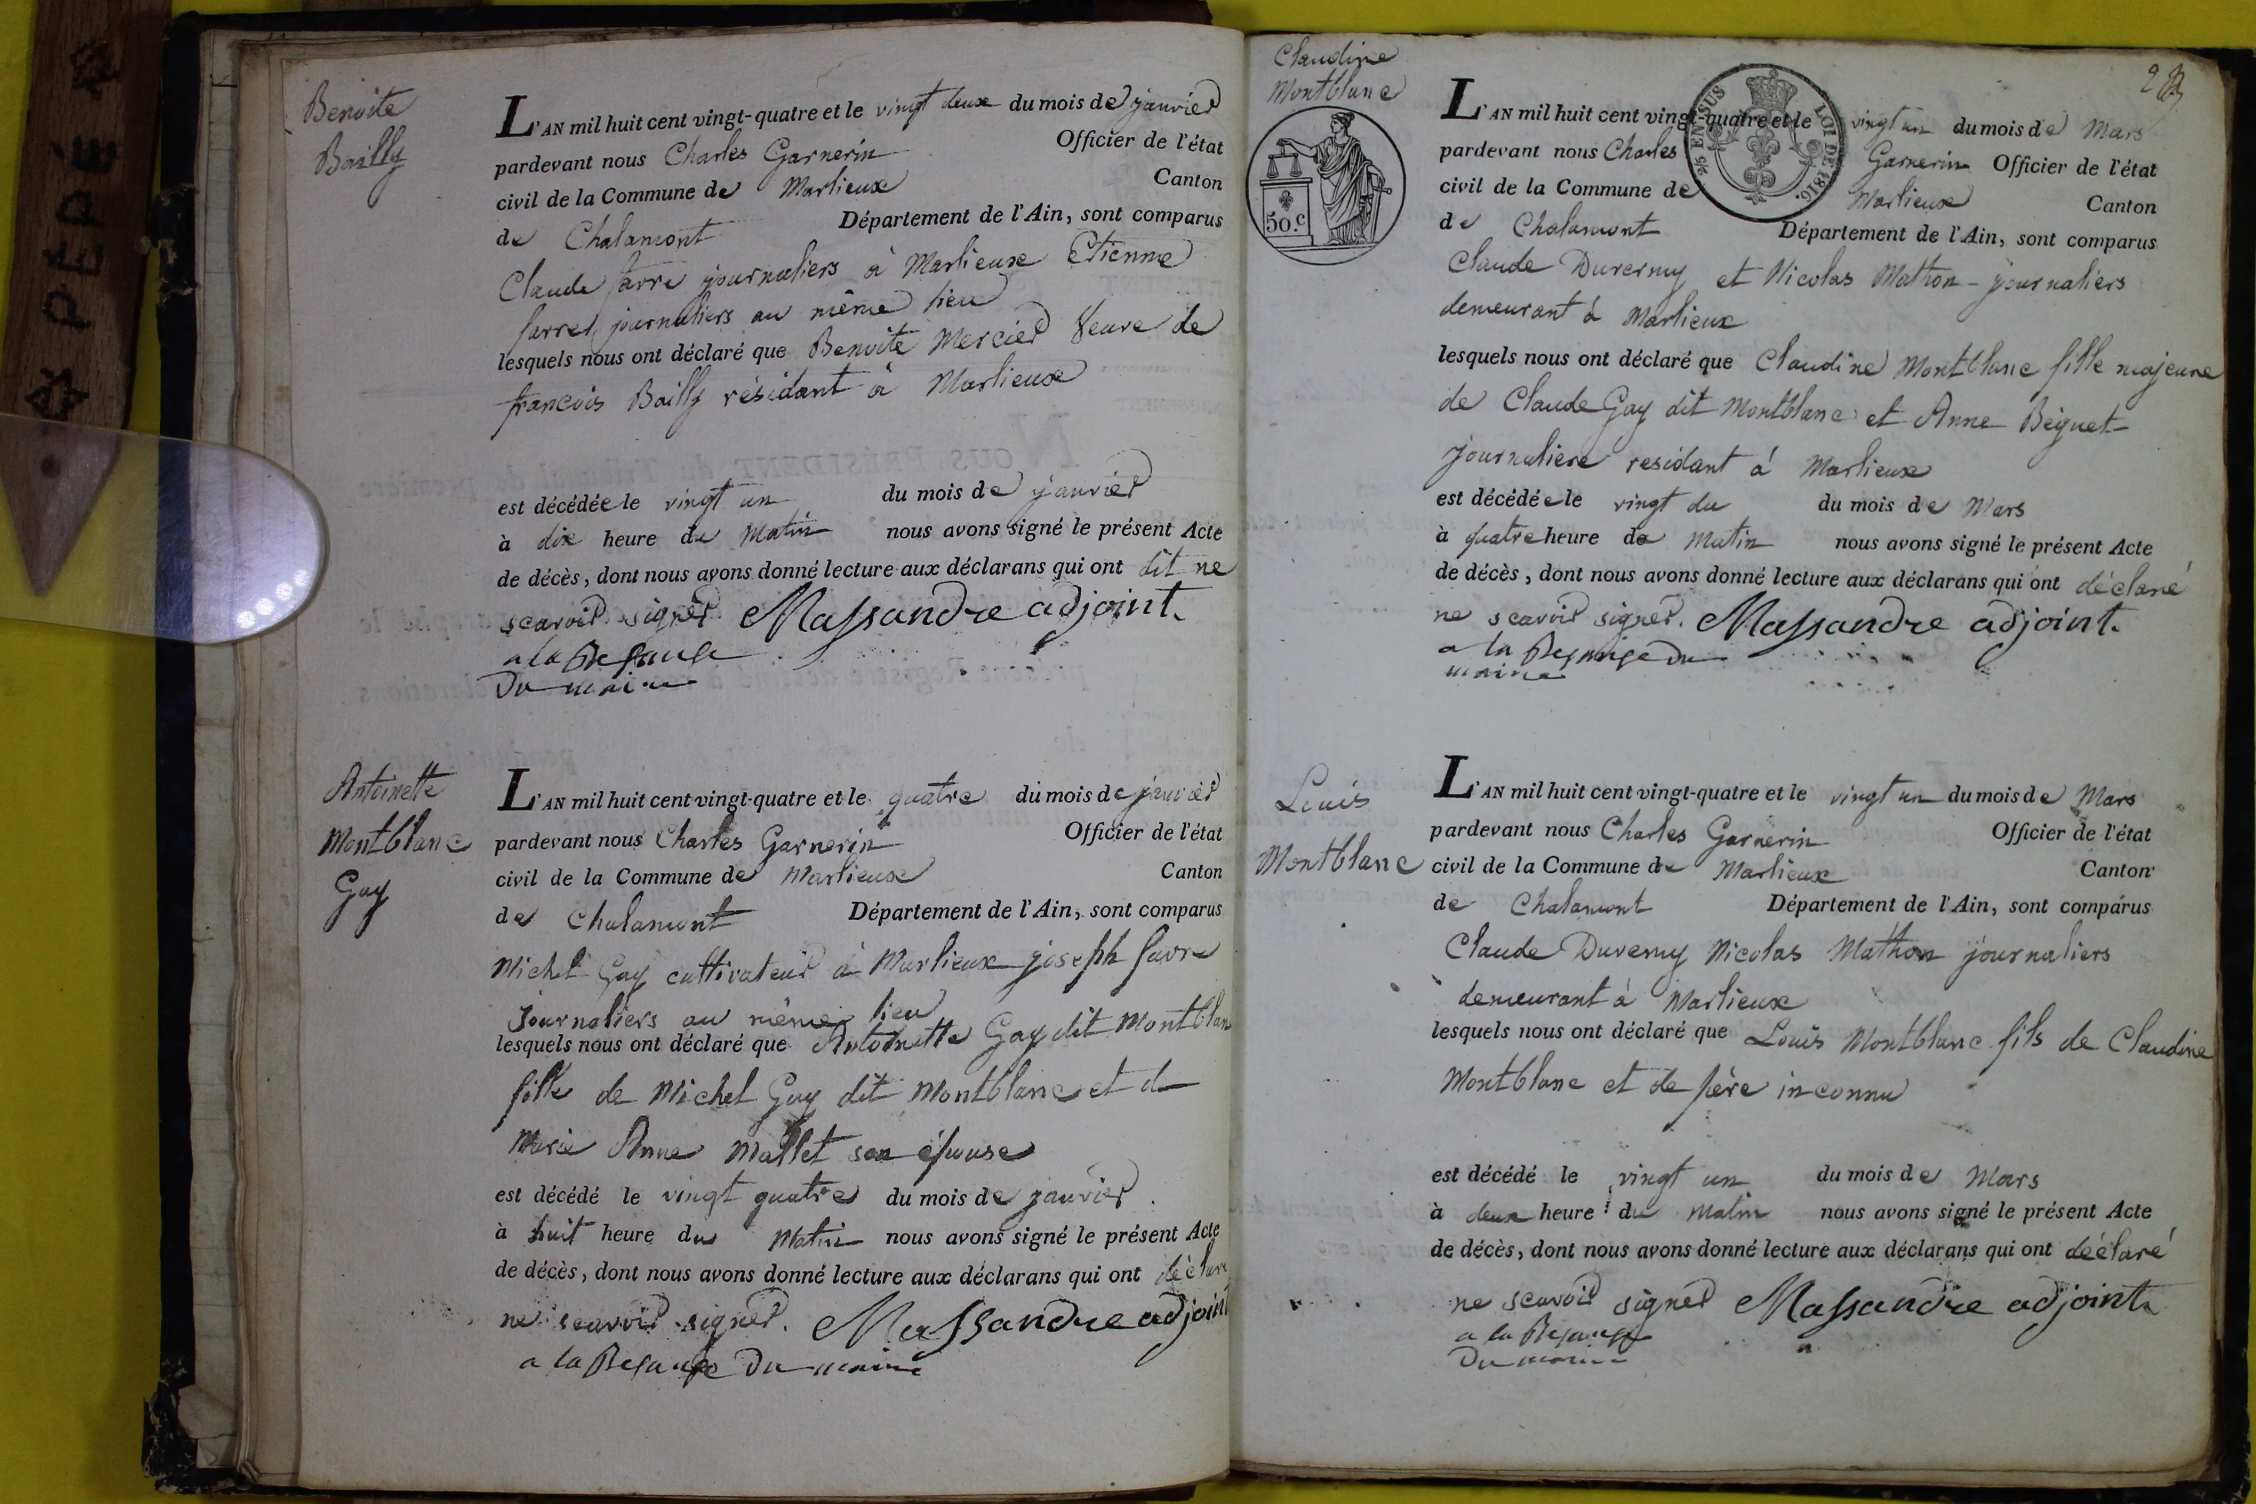 PÉPÉ
Benoite
Bailly
L'AN mil huit cent vingt-quatre et le vingt deux du mois de janvier
pardevant nous Charles Garnerin Officier de l'état
civil de la Commune de Marlieux Canton
de Chalamont Département de l'Ain, sont comparus
Claude farre journaliers à Marlieux Etienne
farre journaliers au même lieu
lesquels nous ont déclaré que Benoite Mercier Veuve de
francois Bailly résidant à Marlieux
est décédée le vingt un du mois de janvier
à dix heure du Matin nous avons signé le présent Acte
de décès, dont nous avons donné lecture aux déclarans qui ont dit ne
scavoir signer Massandre adjoint.
a la
Du maire
Antoinette
Montblanc
Gay
L'AN mil huit cent vingt-quatre et le quatre du mois de janvier
pardevant nous Charles Garnerin Officier de l'état
civil de la Commune de Marlieux Canton
de Chalamont Département de l'Ain, sont comparus
Michel Gay cultivateur à Marlieux joseph favre
journaliers au même lieu
lesquels nous ont déclaré que Antoinette Gay dit Montblan
fille de Michel Gay dit Montblanc et d
Marie Anne Mallet son épouse
est décédé le vingt quatre du mois de janvier
à huit heure du Matin nous avons signé le présent Acte
de décès, dont nous avons donné lecture aux déclarans qui ont déclare
ne scavoir signer. Massandre adjoint
a la Du maire
Claudine
Montblanc
50.c
5 EN SUS LOI DE 1816.
2
L'AN mil huit cent vingt-quatre et le vingt un du mois de Mars
pardevant nous Charles Garnerin Officier de l'état
civil de la Commune de Marlieux Canton
de Chalamont Département de l'Ain, sont comparus
Claude Duverny et Nicolas Mathon journaliers
demeurant à Marlieux
lesquels nous ont déclaré que Claudine Montblanc fille majeure
de Claude Gay dit Montblanc et Anne Béguet
journaliere residant à Marlieux
est décédée le vingt du du mois de Mars
à quatre heure de Matin nous avons signé le présent Acte
de décès, dont nous avons donné lecture aux déclarans qui ont déclaré
ne scavoir signer. Massandre adjoint.
a la Du
maire
Louis
Montblanc
L'AN mil huit cent vingt-quatre et le vingt un du mois de Mars
pardevant nous Charles Garnerin Officier de l'état
civil de la Commune de Marlieux Canton
de Chalamont Département de l'Ain, sont comparus
Claude Duverny Nicolas Mathon journaliers
demeurant à Marlieux
lesquels nous ont déclaré que Louis Montblanc fils de Claudine
Montblanc et de père inconnu
est décédé le vingt un du mois de Mars
à deux heure du Matin nous avons signé le présent Acte
de décès, dont nous avons donné lecture aux déclarans qui ont déclaré
ne scavoir signer Massandre adjoint
a la
Du maire